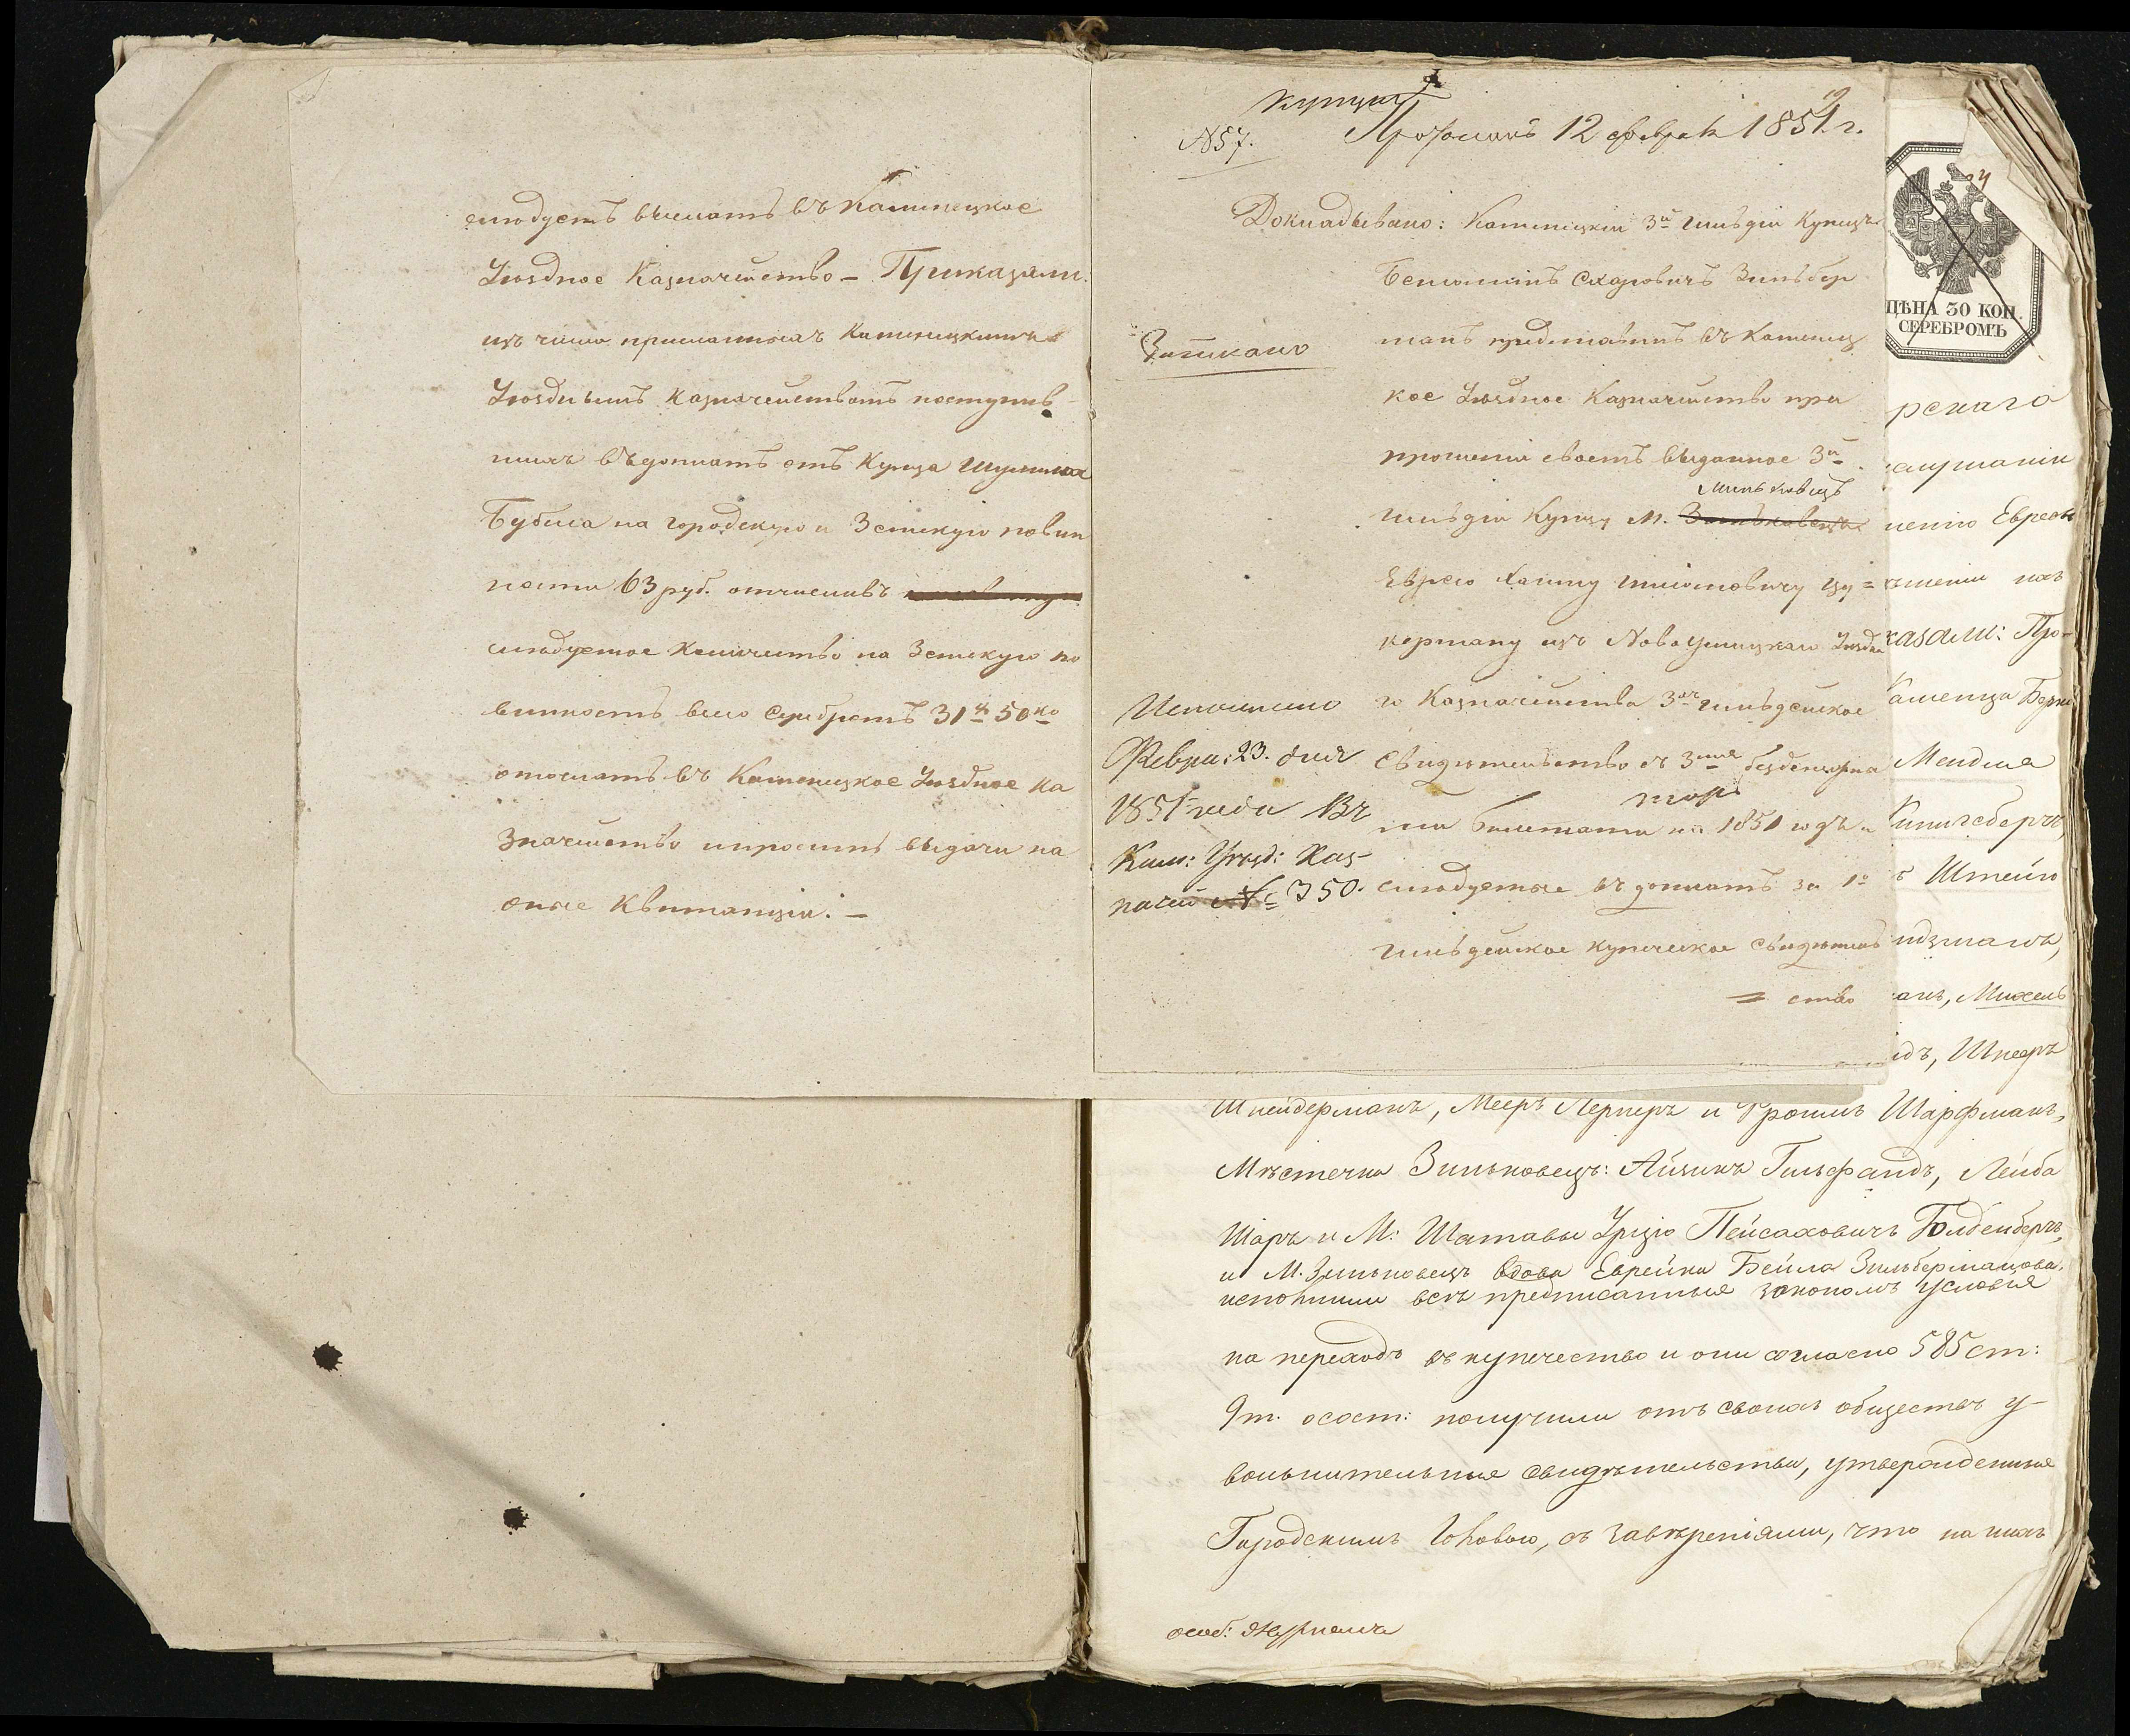 слѣдуетъ вычислить въ Каменецкое
Уѣздное Казначейство – Приказали:
изъ числа присланныхъ Каменецкимъ
Уѣзднымъ Казначействомъ поступив-
шихъ въ доплатъ отъ Купца
на городскую и Земскую повин
ности 63 руб. отчисливъ
слѣдуемое количество на Земскую по
винность всего Серебромъ 31 р 50 ко
отослать въ Каменецкое Уѣздное Ка
значейство и просить выдачи на
оные Квитанціи. –
купцы
№ 57. Протоколъ 12 февраля 1851 г.
Докладывано: Каменецкій 3й гильдіи Купецъ
Беньоминъ Зильбер
манъ представилъ въ Каменец
кое Уѣздное Казначейство при
прошеніи своемъ выданное 3й
Миньковецъ
гильдіи Купцу М.
Еврею Хаиму Шлиомовичу Цу=
керману изъ Новоушицкаго Уѣздна
го Казначейства 3й гильдейское
свидѣтельство съ 3мя
ми билетами на 1851 годъ и
слѣдуемые въ доплатъ за
гильдейское купеческое свидѣтель
= ство
Записано
Исполнено
Февра: 23. дня
1851 года Въ
Кам: Уѣзд: Каз-
начей № 350.
ЦѢНА 30 КОП.
СЕРЕБРОМЪ
рскаго
Евреовъ
казали: Про-
Каменца Берко
Мендель
Кинигсбергъ,
Штейн
анъ, Михель
Шнееръ
Шнейдерманъ, Мееръ Лернеръ и Фроимъ Шарфманъ,
Мѣстечка Зиньковецъ: Айзикъ Гильфандъ, Лейба
Шаръ и М: Шатавы Урцію Пейсаховичъ Голденбергъ,
и М. Зиньковецъ вдова Еврейка Бейла Зильберманова.
исполнили всѣ предписанныя закономъ условія
на переходъ въ купечество и они согласно 585 ст:
9 т. о сост: получили отъ своихъ обществъ у-
вольнительныя свидѣтельства, утвержденныя
Городскимъ Головою, съ завѣреніями, что на нихъ
особ: журнала